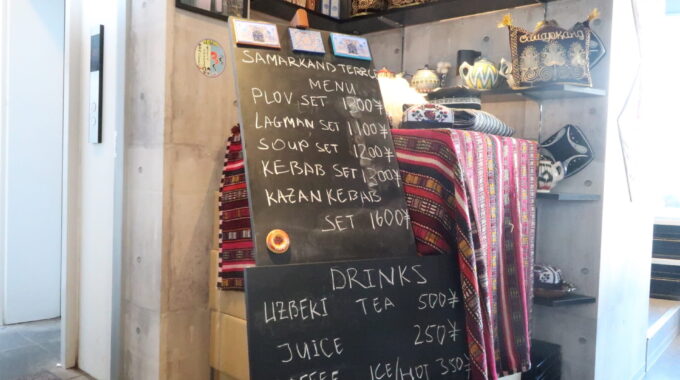 SAMARKAND TERRACE
MENU
PLOV SET 1200¥
LAGMAN SET 1100¥
SOUP SET 1200¥
KEBAB SET 1300¥
KAZAN KEBAB
SET 1600¥
DRINKS
UZBEKI TEA 500¥
JUICE 250¥
COFFEE ICE/HOT 350¥